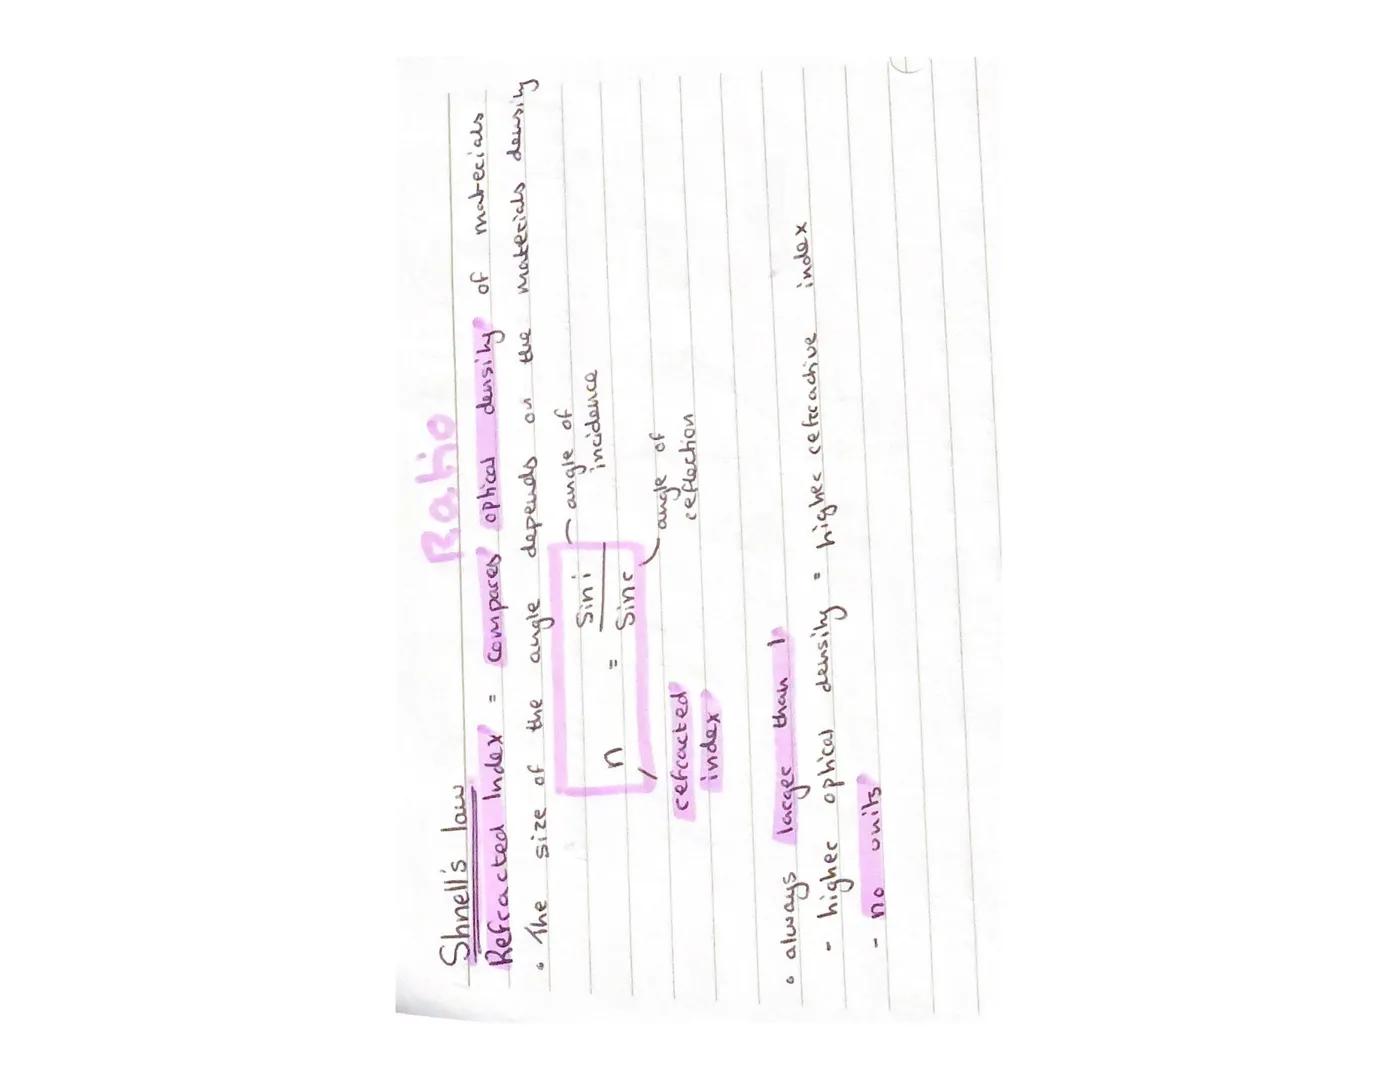 Ratio
Shnell's law
Refracted Index = compares optical density of materials
• The size of the angle depends on the materials density
n = sin i / sin r
angle of
incidence
angle of
reflection
refracted
index
• always larger than 1.
- higher optical density = higher refractive index
- no units